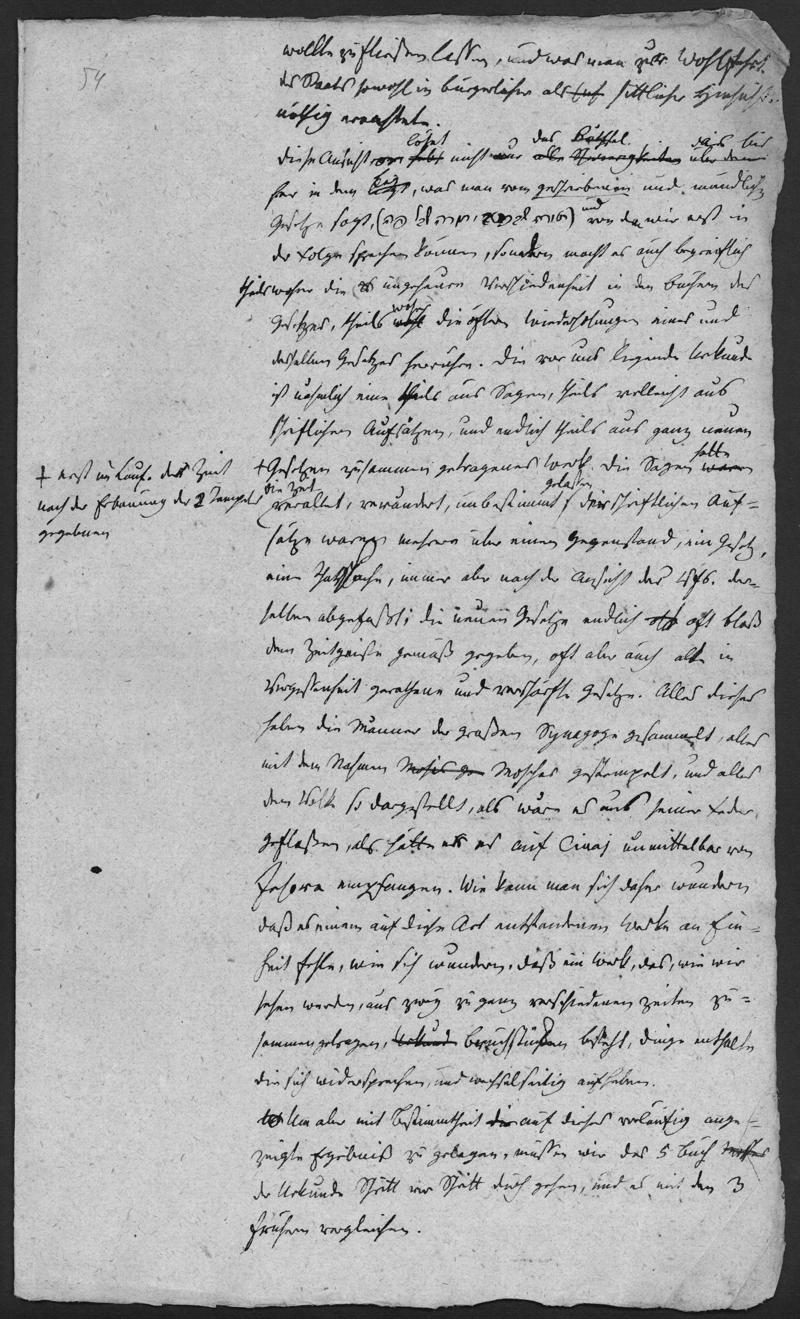 54
wollte zufließen lassen, und was man zur Wohlfahrt
des Staats sowohl in bürgerlicher als auf sittlicher Hinsicht
nöthig erachtete.
Diese Ansicht löset nicht nur das Räthsel
hier in dem liegt, was man vom geschriebenen und mündlich
Gesetze sagt, und von dem wir erst in
der Folge sprechen können, sondern macht es auch begreiflich
theils woher die ungeheure Verschiedenheit in den Büchern des
Gesetzes, theils woher die öftern Wiederholungen eines und
desselben Gesetzes herrühren. Die vor uns liegende Urkunde
ist nehmlich eine theils aus Sagen, theils vielleicht aus
schriftlichen Aufsätzen, und endlich theils aus ganz neuen
+ Gesetzen zusammen getragenes Werk. Die Sagen hatte
+ erst im Lauf. der Zeit
nach der Erbauung des 2 Tempels
gegebenen
die Zeit
veraltet, verändert, unbestimmt gelassen, der schriftlichen Auf=
sätze waren mehrere über einen Gegenstand, ein Gesetz,
eine Thatsache, immer aber nach der Ansicht des Vfs. der=
selben abgefaßt; die neuen Gesetze endlich oft bloß
dem Zeitgeiste gemäß gegeben, oft aber auch alte in
Vergessenheit gerathene und verschärfte Gesetze. Alles dieses
haben die Männer der großen Synagoge gesammelt, alles
mit dem Nahmen Mosis Mosches gestempelt, und alles
dem Volke so dargestellt, als wäre es aus seiner Feder
geflossen, als hätte er es auf Sinaj unmittelbar von
Jehova empfangen. Wie kann man sich daher wundern
daß es einem auf diese Art entstandenen Werke an Ein=
heit fehle, wie sich wundern, daß ein Werk, das, wie wir
sehen werden, aus zwey zu ganz verschiedenen Zeiten zu=
sammengetragen, Urkund Bruchstücken besteht, Dinge enthalte
die sich widersprechen, und wechselseitig aufheben.
Um aber mit Bestimmtheit auf dieses vorläufig ange=
zeigte Ergebniß zu gelangen, müssen wir das 5 Buch Mosches
der Urkunde Schritt vor Schritt durch gehen, und es mit den 3
frühern vergleichen.